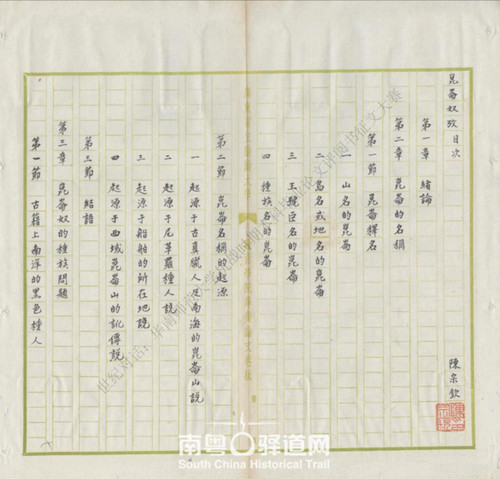 昆崙奴攷 目次
陳宗欽
第一章 緒論
第二章 昆崙的名稱
第一節 昆崙釋名
一 山名的昆崙
二 島名或地名的昆崙
三 王號臣名的昆崙
四 種族名的昆崙
第二節 昆崙名稱的起源
一 起源于古真臘人及南海的昆崙山說
二 起源于尼革羅種人說
三 起源于船舶的所在地說
四 起源于西域昆崙山的訛傳說
第三節 結語
第三章 昆崙奴的種族問題
第一節 古籍上南洋的黑色種人
南粤驿道网
South China Historical Trail